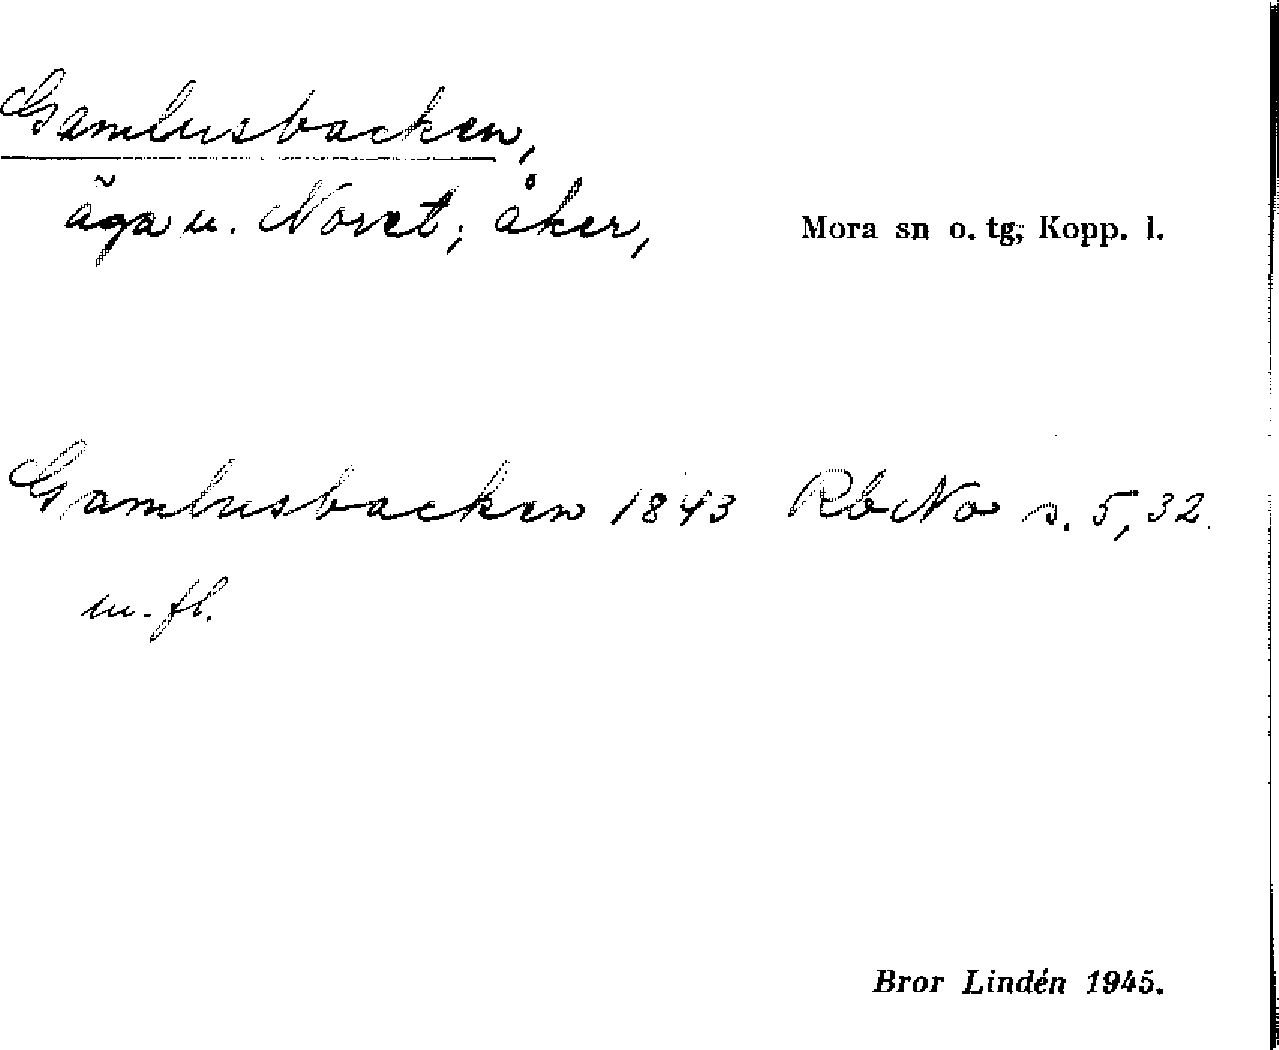 Gamlusbacken,
äga u. Noret; åker, Mora sn o. tg; Kopp. l.
Gamlusbacken 1843 RbNo s. 5, 32.
m. fl.
Bror Lindén 1945.